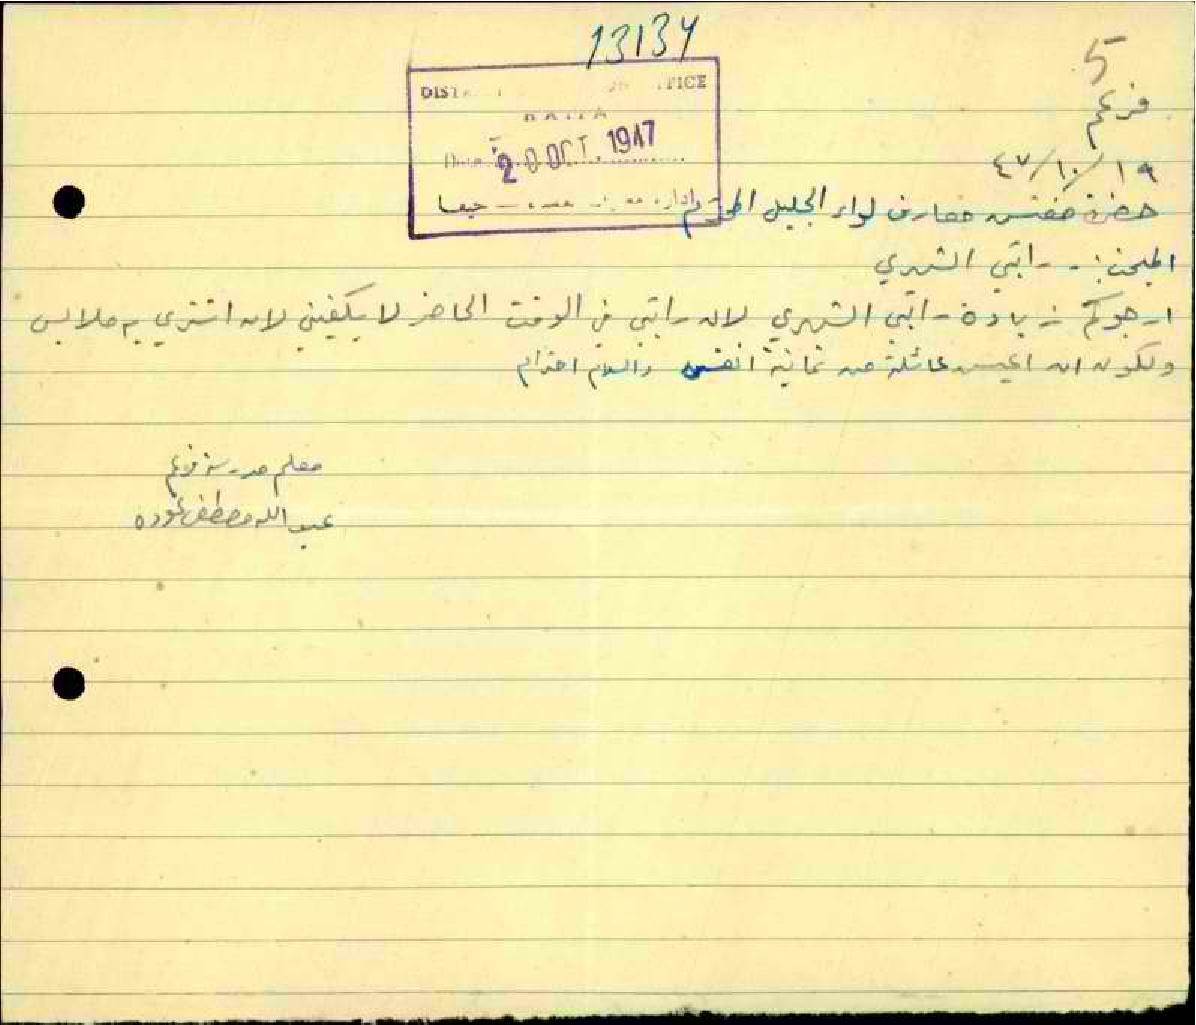 13134
5
DIST ICE
HAIFA
Date 20 OCT. 1947
ادارة حيفا
فرعم
٤٧/١٠/١٩
حضرة مفتش معارف لواء الجليل المحترم
المبحث:- راتبي الشهري
ارجوكم زيادة راتبي الشهري لان راتبي في الوقت الحاضر لا يكفيني لان اشتري به ملابس
ولكون ان اعيش عائلة من ثمانية انفس والسلام احترام
معلم مدرسة فرعم
عبد الله مصطفى عوده